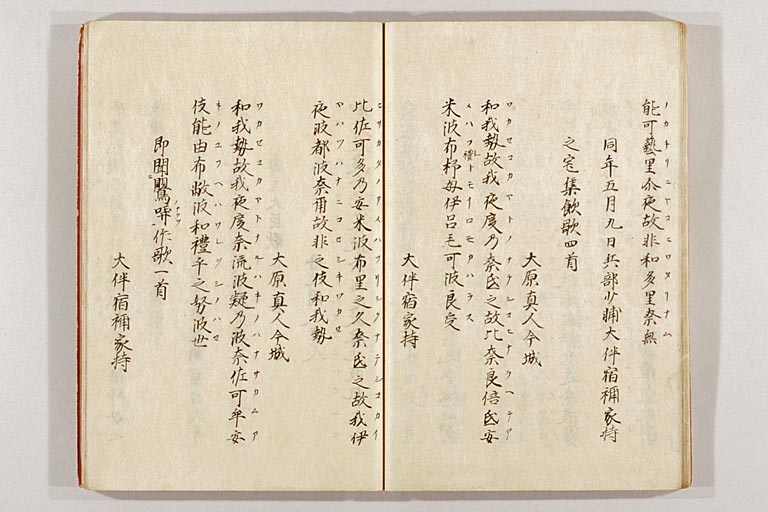 ノカケリニヤコヒワタリナム
能可藝里尒夜故非和多里奈無
同年五月九日兵部少輔大伴宿祢家持
之宅集飲歌四首
大原真人今城
ワカセコカヤトノナテシコヒナラヘテア
和我勢故我夜度乃奈氐之故比奈良倍氐安
メハフレトモイロモカハラス
米波布禮杼母伊呂毛可波良受
大伴宿祢家持
ヒサカタノアメハフリシクナテシコカイ
比佐可多乃安米波布里之久奈氐之故我伊
ヤハツハナニコヒシキワカセ
夜波都波奈爾故非之伎和我勢
大原真人今城
ワカセコカヤトナルハキノハナサカムア
和我勢故我夜度奈流波疑乃波奈佐可牟安
キノユフヘハワレヲシノハセ
伎能由布敝波和禮乎之努波世
即聞鸎哢作歌一首
大伴宿祢家持